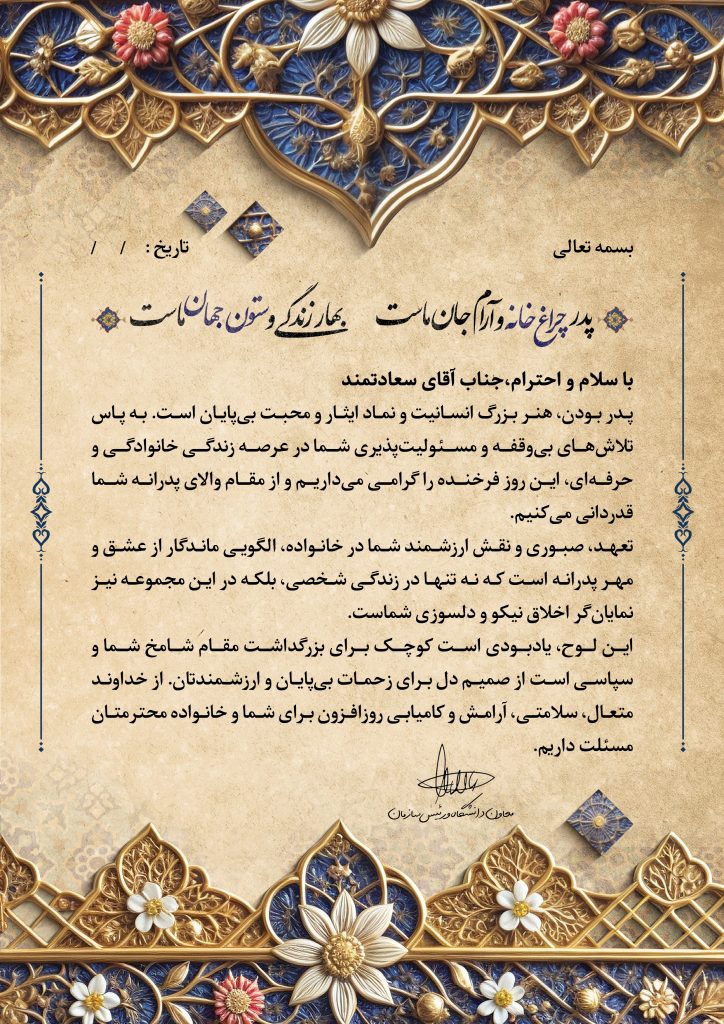 بسمه تعالی
تاریخ : / /
پدر چراغ خانه و آرام جان ماست بهار زندگی و ستون جهان ماست
با سلام و احترام،جناب آقای سعادتمند
پدر بودن، هنر بزرگ انسانیت و نماد ایثار و محبت بی‌پایان است. به پاس
تلاش‌های بی‌وقفه و مسئولیت‌پذیری شما در عرصه زندگی خانوادگی و
حرفه‌ای، این روز فرخنده را گرامی می‌داریم و از مقام والای پدرانه شما
قدردانی می‌کنیم.
تعهد، صبوری و نقش ارزشمند شما در خانواده، الگویی ماندگار از عشق و
مهر پدرانه است که نه تنها در زندگی شخصی، بلکه در این مجموعه نیز
نمایان‌گر اخلاق نیکو و دلسوزی شماست.
این لوح، یادبودی است کوچک برای بزرگداشت مقام شامخ شما و
سپاسی است از صمیم دل برای زحمات بی‌پایان و ارزشمندتان. از خداوند
متعال، سلامتی، آرامش و کامیابی روزافزون برای شما و خانواده محترمتان
مسئلت داریم.
معاون دانشگاه و رئیس سازمان